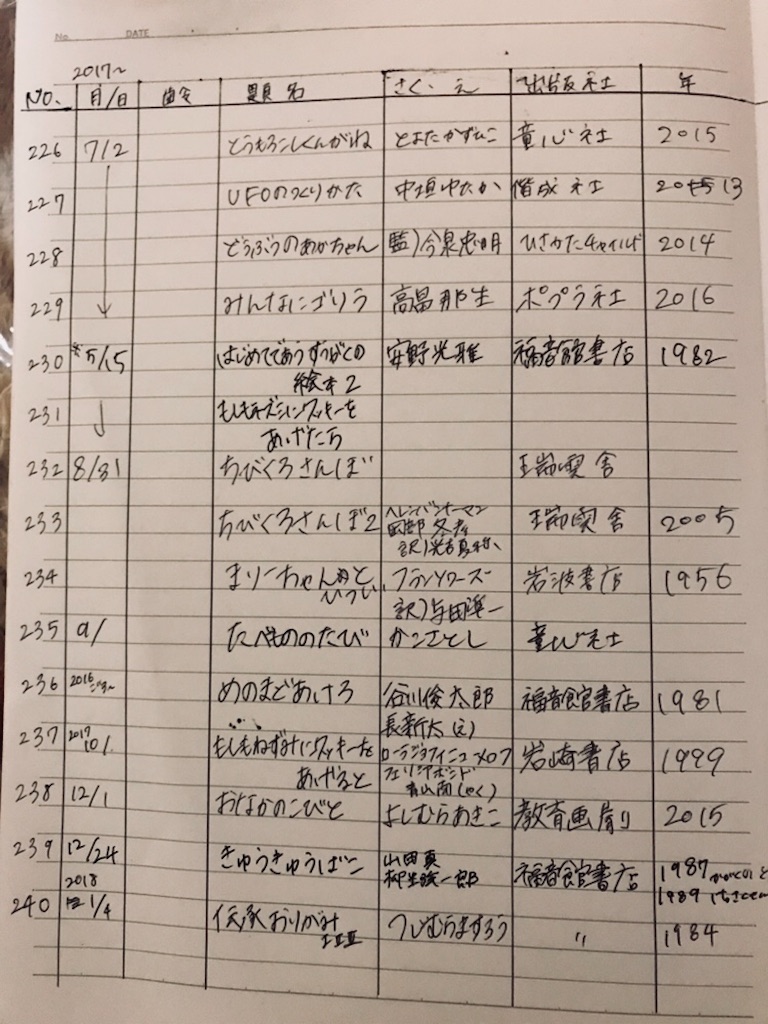 No. DATE
2017〜
NO. 月/日 題名 さく・え 出版社 年
226 7/2 とうもろこしくんがね とよたかずひこ 童心社 2015
227 UFOのつくりかた 中垣ゆたか 偕成社 2013
228 どうぶつのあかちゃん 監)今泉忠明 ひさかたチャイルド 2014
229 みんなにごりう 高畠那生 ポプラ社 2016
230 /15 はじめてであうすうがくの 安野光雅 福音館書店 1982
絵本2
231 もしもネズミにクッキーを
あげたら
232 8/31 ちびくろさんぼ 瑞雲舎
233 ちびくろさんぼ2 ヘレンバンナーマン 瑞雲舎 2005
岡部冬彦
訳)光吉夏弥
234 まりーちゃんと フランソワーズ 岩波書店 1956
ひつじ 訳)与田凖一
235 9/ たべもののたび かこさとし 童心社
236 2016 めのまどあけろ 谷川俊太郎 福音館書店 1981
長新太(え)
237 2017 10/ もしもねずみにクッキーを ローラジョフィニューメロフ 岩崎書店 1999
あげると フェリシアボンド
青山南(やく)
238 12/1 おなかのこびと よしむらあきこ 教育画劇 2015
239 12/24 きゅうきゅうばこ 山田真 福音館書店 1987 かがくのとも
柳生弦一郎 1989
2018
240 1/4 伝承おりがみ つじむらますろう 〃 1984
I II III